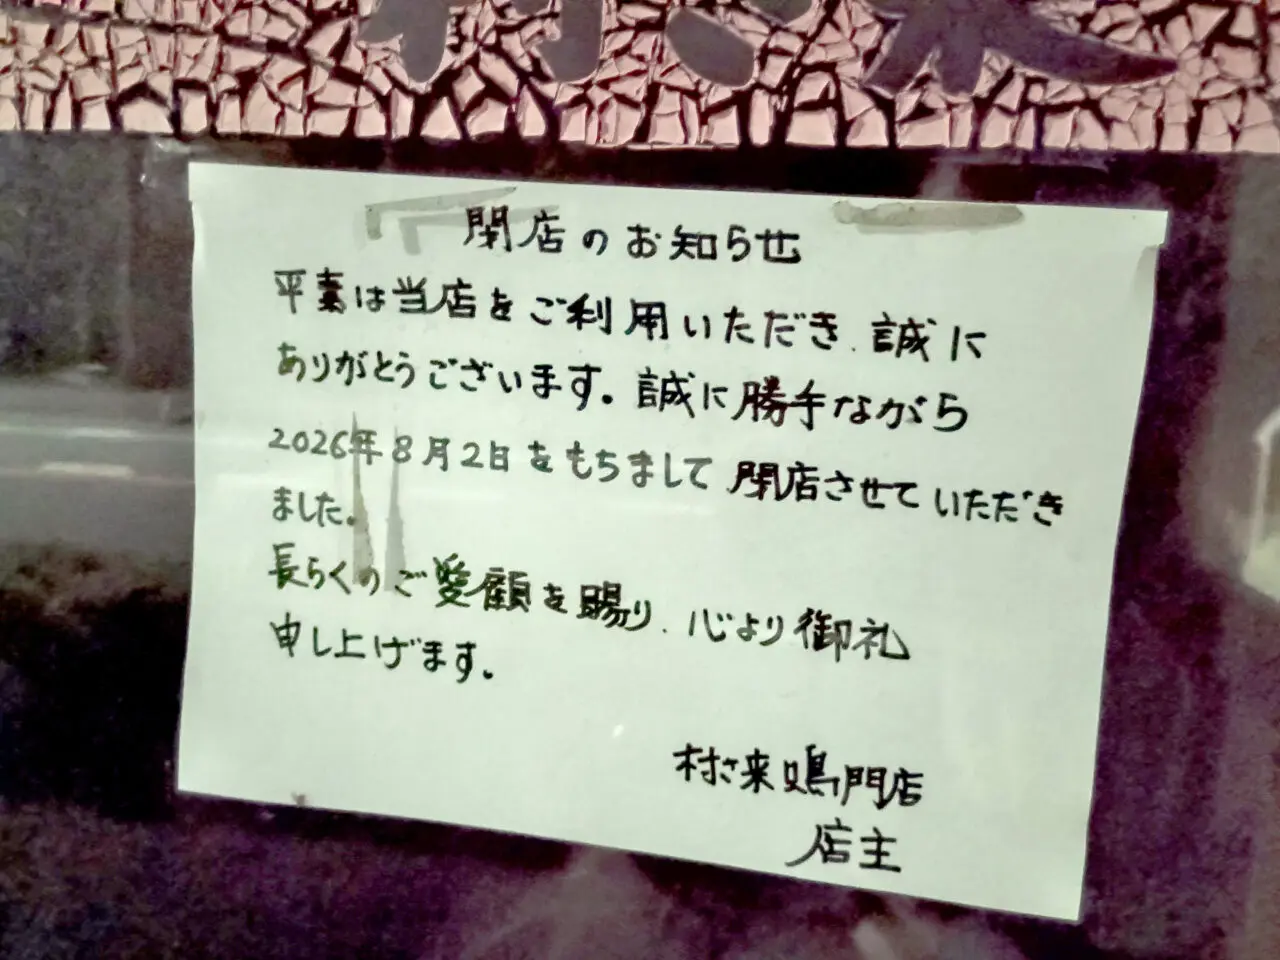 閉店のお知らせ
平素は当店をご利用いただき、誠に
ありがとうございます。誠に勝手ながら
2026年8月2日をもちまして閉店させていただき
ました。
長らくのご愛顧を賜り、心より御礼
申し上げます。
村さ来鳴門店
店主